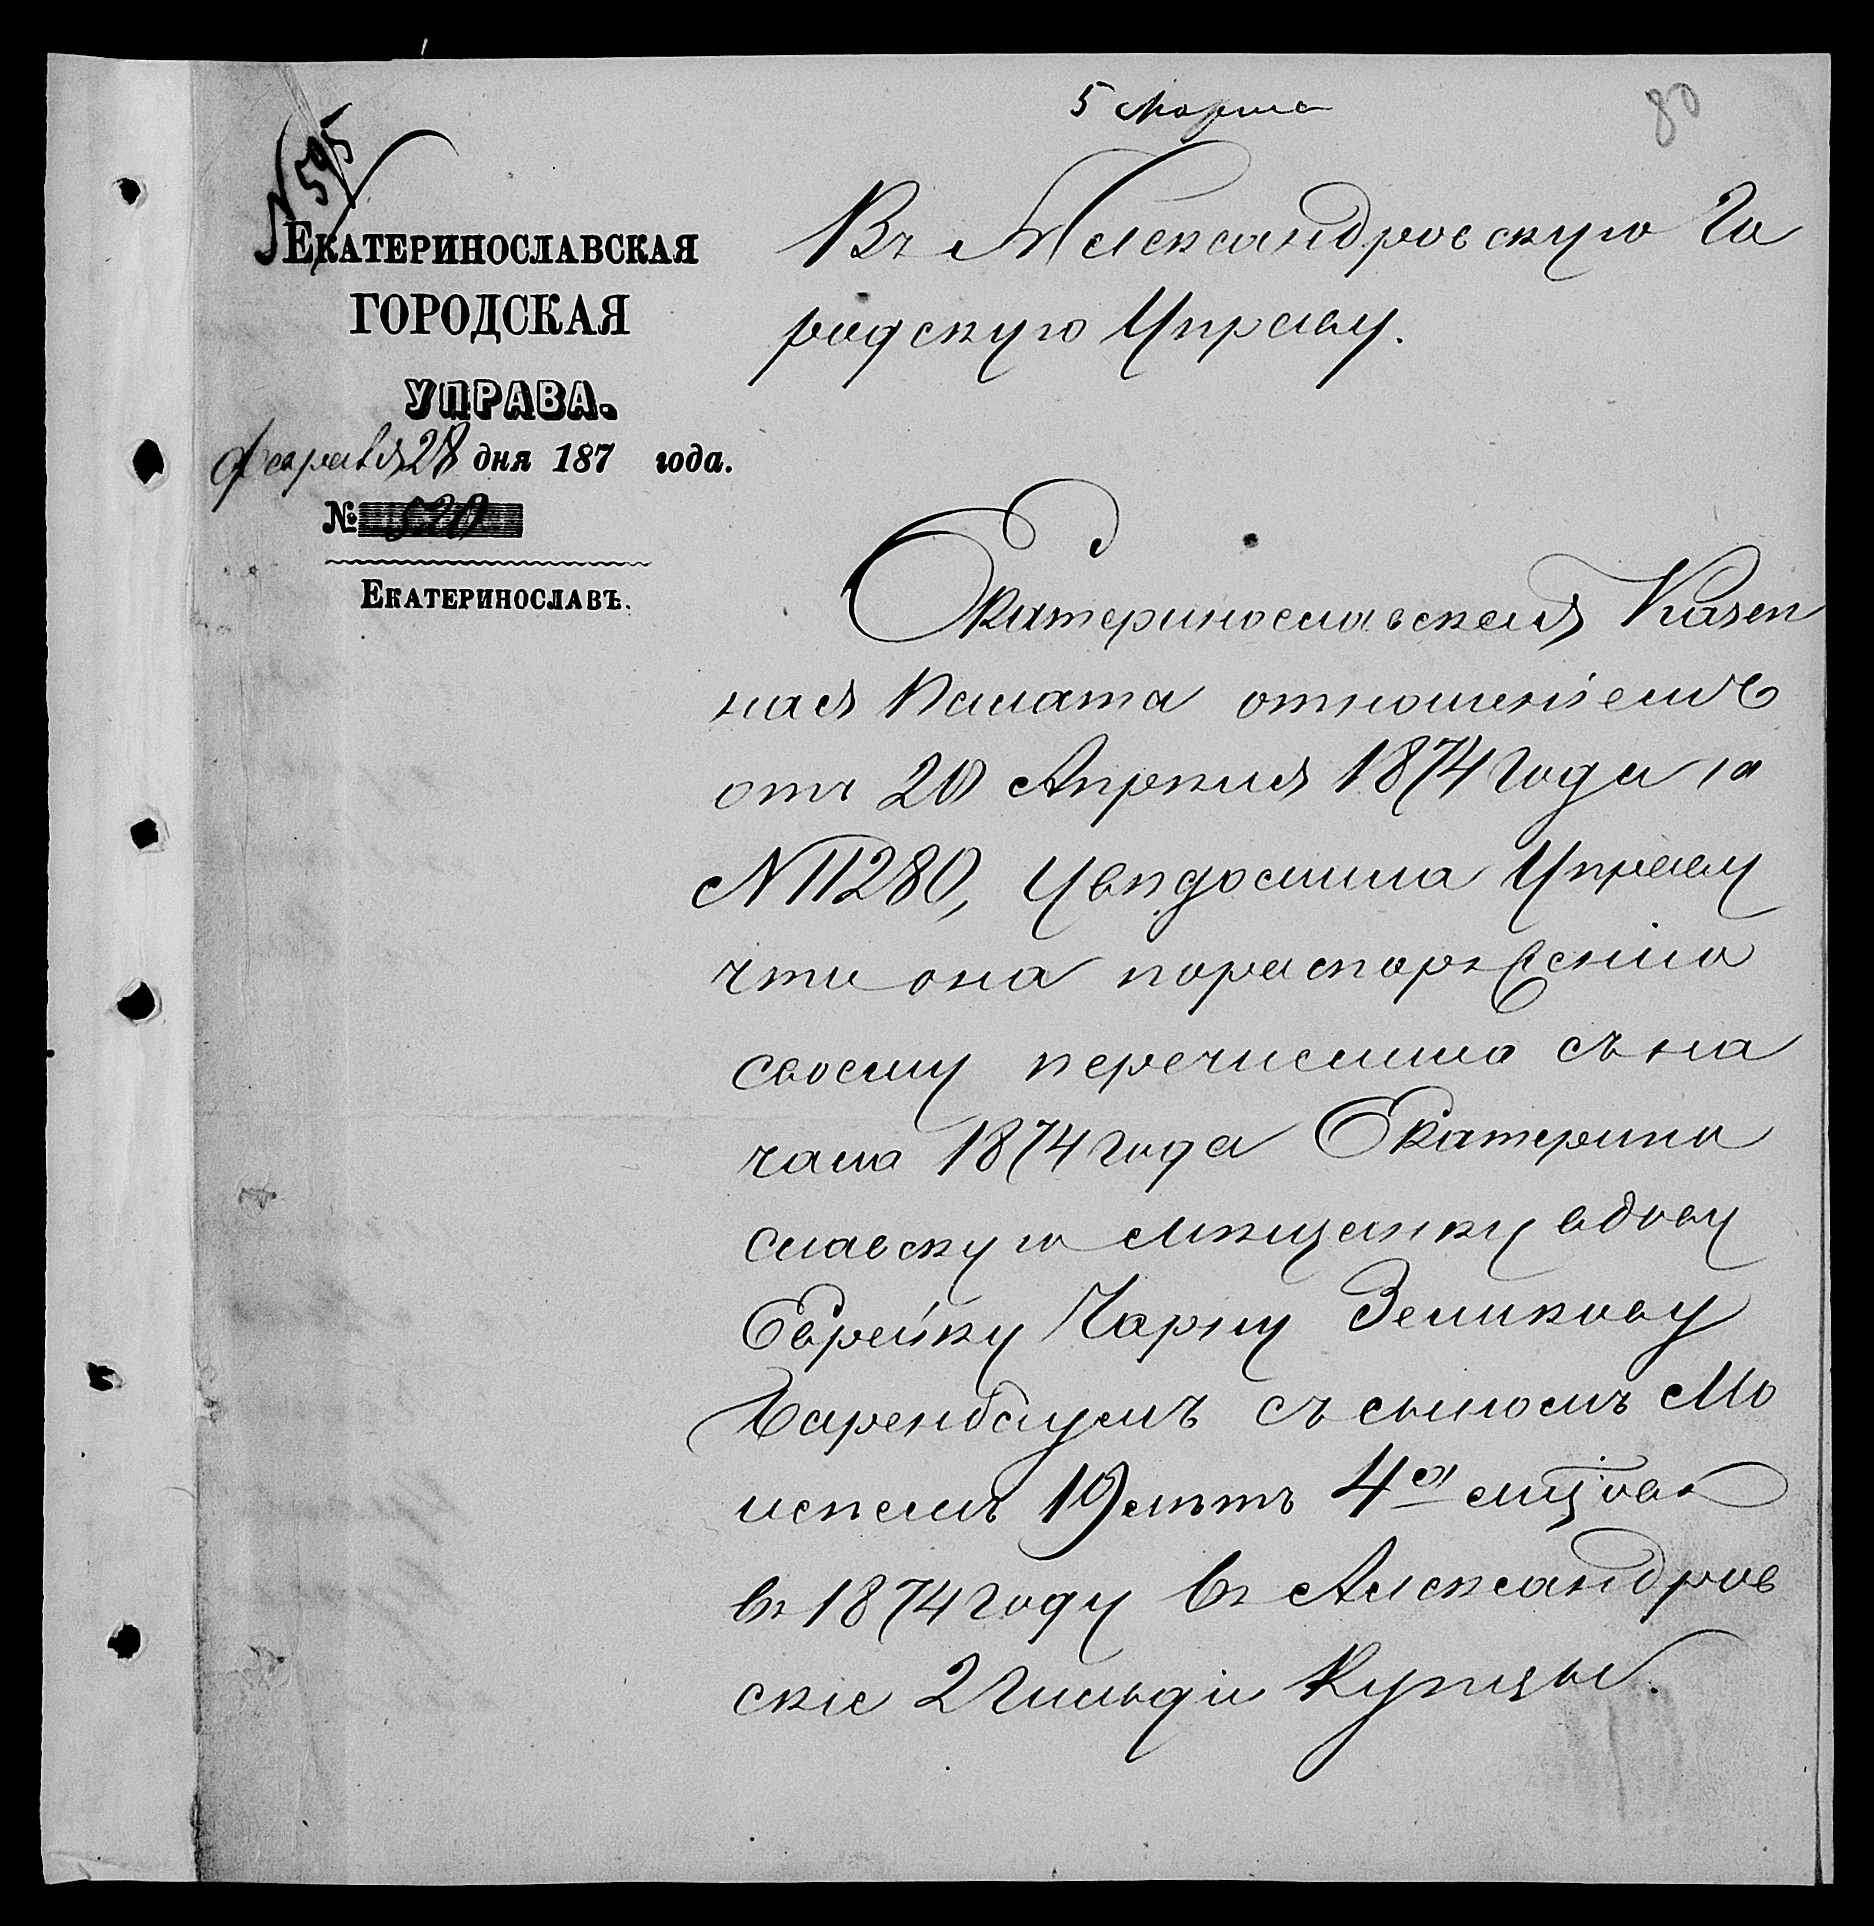 5 Марта
80
№ 595
ЕКАТЕРИНОСЛАВСКАЯ
ГОРОДСКАЯ
УПРАВА.
Февраля 28 дня 187 года.
№ 520
ЕКАТЕРИНОСЛАВЪ.
Въ Александровскую Го
родскую Управу.
Екатеринославская Казен
ная Палата отношеніемъ
отъ 20 Апрѣля 1874 года за
N 11280, увѣдомила Управу
что она пораспоряженію
своему перечислила съ на
чала 1874 года Екатерино
славскую мѣщанку вдову
Еврейку Чарну Зеликову
Баренбаумъ съ сыномъ Мо
исеемъ 19 лѣтъ
въ 1874 году въ Александров
скіе 2 Гильдіи Купцы.